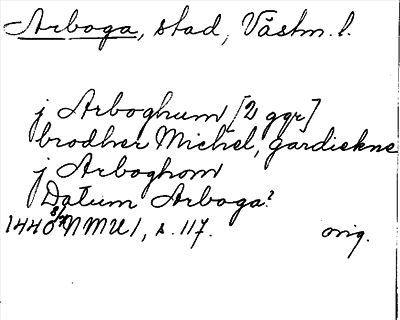 Arboga, stad, Västm. l.
j Arboghum [2 ggr]
brodher Michel, gardiekne
j Arboghom
Datum Arboga?
1440 NMU 1, s. 117. orig.